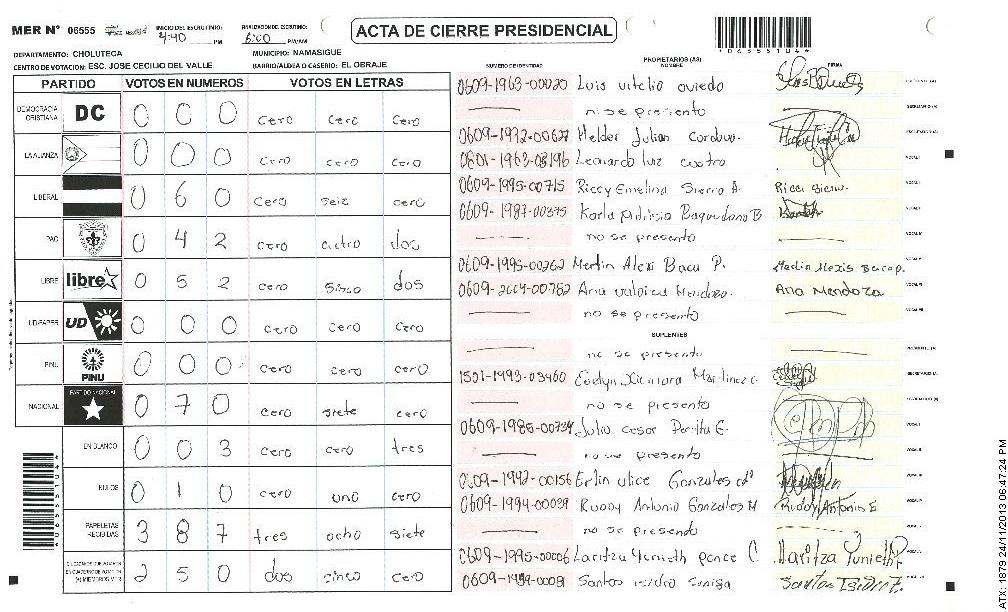 MER Nº 06555 INICIO DEL ESCRUTINIO: 4:40 PM FINALIZACION DEL ESCRUTINIO: 6:00 PM/AM
ACTA DE CIERRE PRESIDENCIAL
DEPARTAMENTO: CHOLUTECA MUNICIPIO: NAMASIGUE
CENTRO DE VOTACION: ESC. JOSE CECILIO DEL VALLE BARRIO/ALDEA O CASERIO: EL OBRAJE
PARTIDO VOTOS EN NUMEROS VOTOS EN LETRAS
DEMOCRACIA CRISTIANA DC 0 0 0 cero cero cero
LA ALIANZA 0 0 0 cero cero cero
LIBERAL 0 6 0 cero seiz cero
PAC 0 4 2 cero cuatro dos
LIBRE libre 0 5 2 cero sinco dos
UD-FAPER UD 0 0 0 cero cero cero
PINU PINU 0 0 0 cero cero cero
NACIONAL PARTIDO NACIONAL 0 7 0 cero siete cero
EN BLANCO 0 0 3 cero cero tres
NULOS 0 1 0 cero uno cero
PAPELETAS RECIBIDAS 3 8 7 tres ocho siete
2 5 0 dos cinco cero
NUMERO DE IDENTIDAD PROPIETARIOS (AS) NOMBRE FIRMA
0609-1963-00020 Luis vitelio oviedo
no se presento
0609-1972-00627 Helder Julian
0801-1963-08196 Leonardo
0609-1995-00715 Riccy Emelina Sierra A.
0609-1987-00375 Karla Patrisia Baquedano B
no se presento
0609-1995-00262 Merlin Alexi Baca P.
Ana Mendoza
no se presento
SUPLENTES
no se presento
1501-1993-03460 Evelyn Xiomara Martinez C.
no se presento
0609-1985-00734 Julio cesar
no se presento
0609-1992-00156 Erlin Gonzales
0609-1994-00039 Ruddy Antonio Gonzales M
no se presendo
0609-1995-00006 Laritza Yunieth ponce C.
Santos isidro
ATX: 1879 24/11/2013 06:47:24 PM